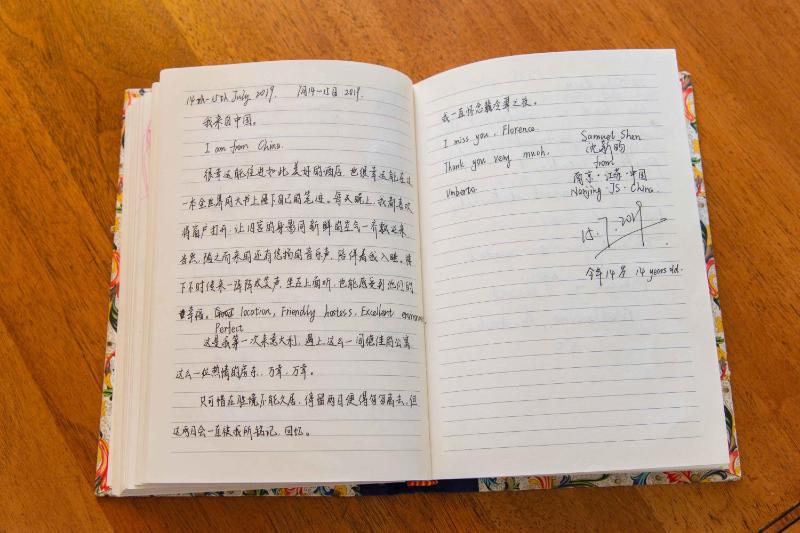 14th-15th July 2019. 7月14-15日 2019.
我来自中国。
I am from China.
很幸运能住进如此美好的酒店,也很幸运能在这
一本全世界的大书上留下自己的笔迹。每天晚上,我都喜欢
将窗户打开,让的身影同新鲜的空气一齐飘进来
当然,随之而来的还有悠扬的音乐声,陪伴着我入睡。楼
下不时传来一阵阵欢笑声,坐在上面听,也能感受到他们的
幸福。Great location, Friendly hostess, Excellent environment,
Perfect
这是我第一次来意大利,遇上这么一间绝佳的公寓
这么一位热情的房东,万幸,万幸。
只可惜在此境不能久居,停留两日便得匆匆离去,但
这两日会一直被我所铭记,回忆。
我一直怀念翡冷翠之夜。
I miss you, Florence.
Thank you very much,
Umberto.
Samuel Shen
沈
from
南京·江苏·中国
Nanjing·JS·China.
15.7.2019
今年14岁 14 years old.